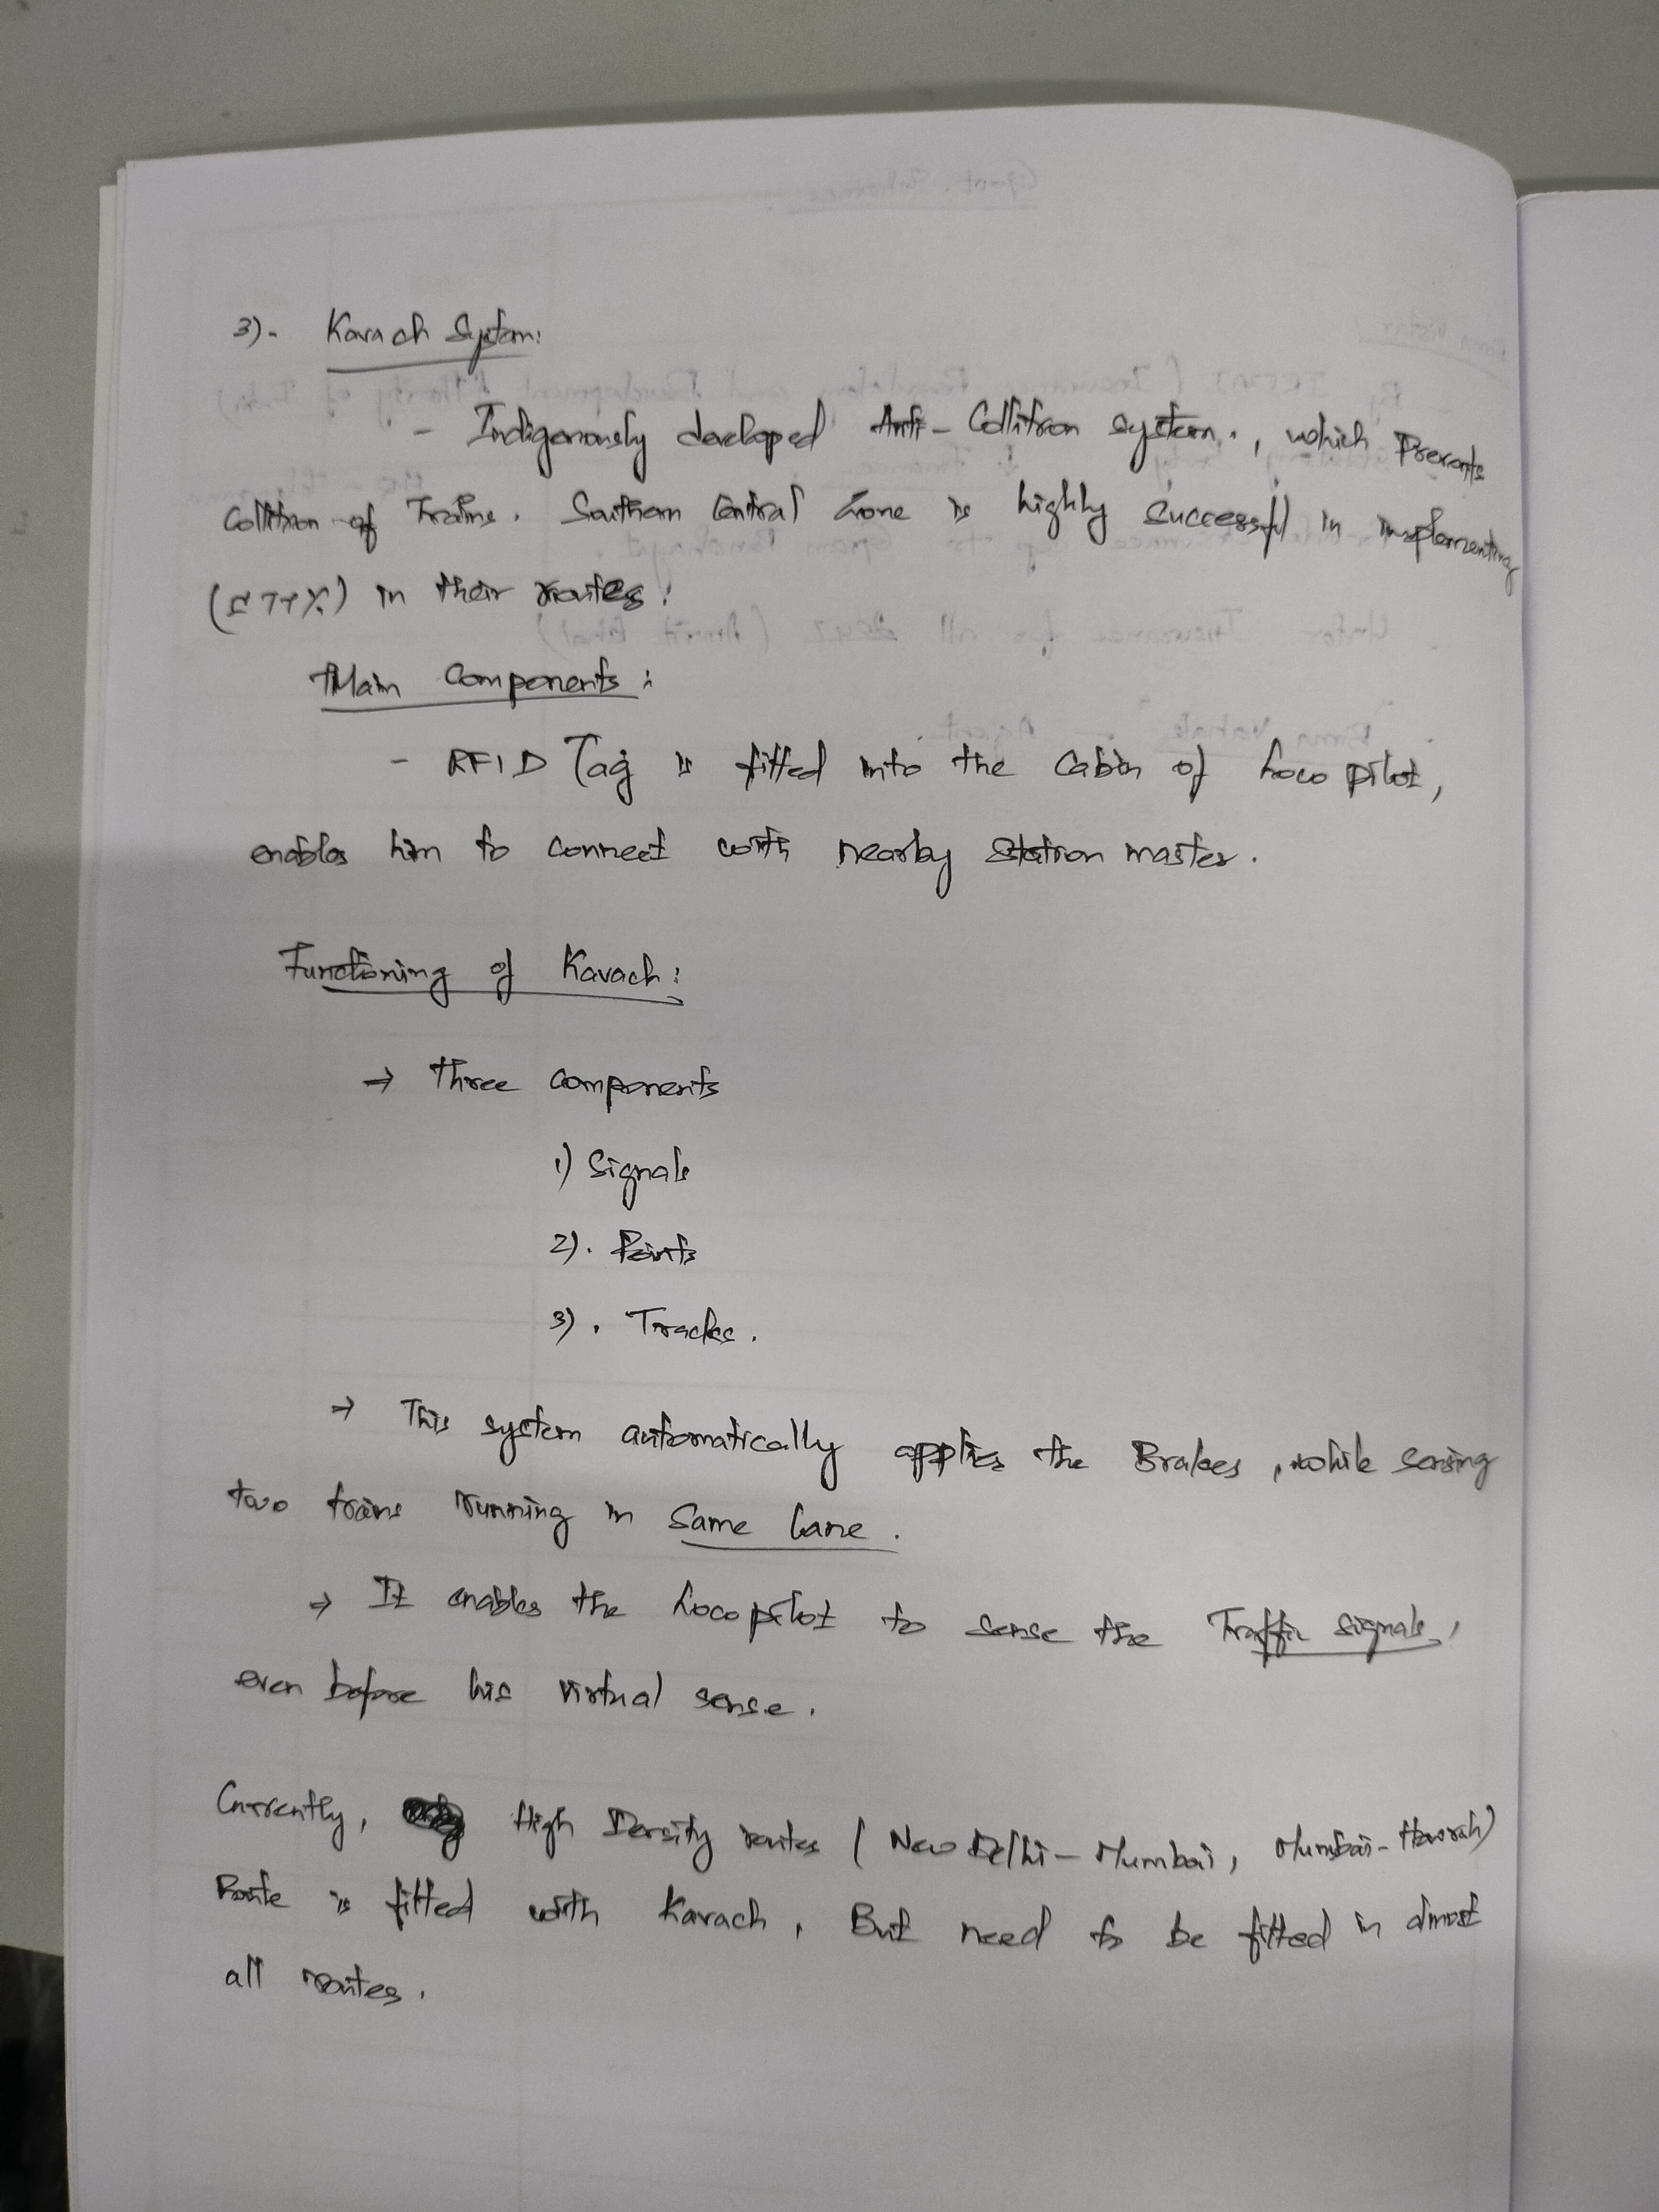 3)- Kavach System:
- Indigenously developed Anti-Collition system., which Prevents
Collition of Trains. Southern Central Zone is highly successful in implementing
( %) in their routes.
Main Components:
- RFID Tag is fitted into the Cabin of Loco pilot,
enables him to connect with nearby Station master.
Functioning of Kavach:
→ Three components
1) Signals
2). Points
3). Tracks.
→ This system automatically applies the Brakes, while sensing
two trains running in Same Lane.
→ It enables the Loco pilot to sense the Traffic signals,
even before his virtual sense.
Currently, High Density routes (New Delhi-Mumbai, Mumbai-Howrah)
Route is fitted with Kavach, But need to be fitted in almost
all routes.